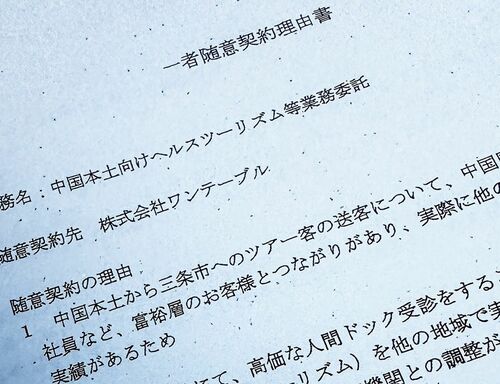 一者随意契約理由書
務名：中国本土向けヘルスツーリズム等業務委託
随意契約先 株式会社ワンテーブル
随意契約の理由
1 中国本土から三条市へのツアー客の送客について、中国
社員など、富裕層のお客様とつながりがあり、実際に他の
実績があるため
にて、高価な人間ドック受診をする
リズム）を他の地域で実
機関との調整が